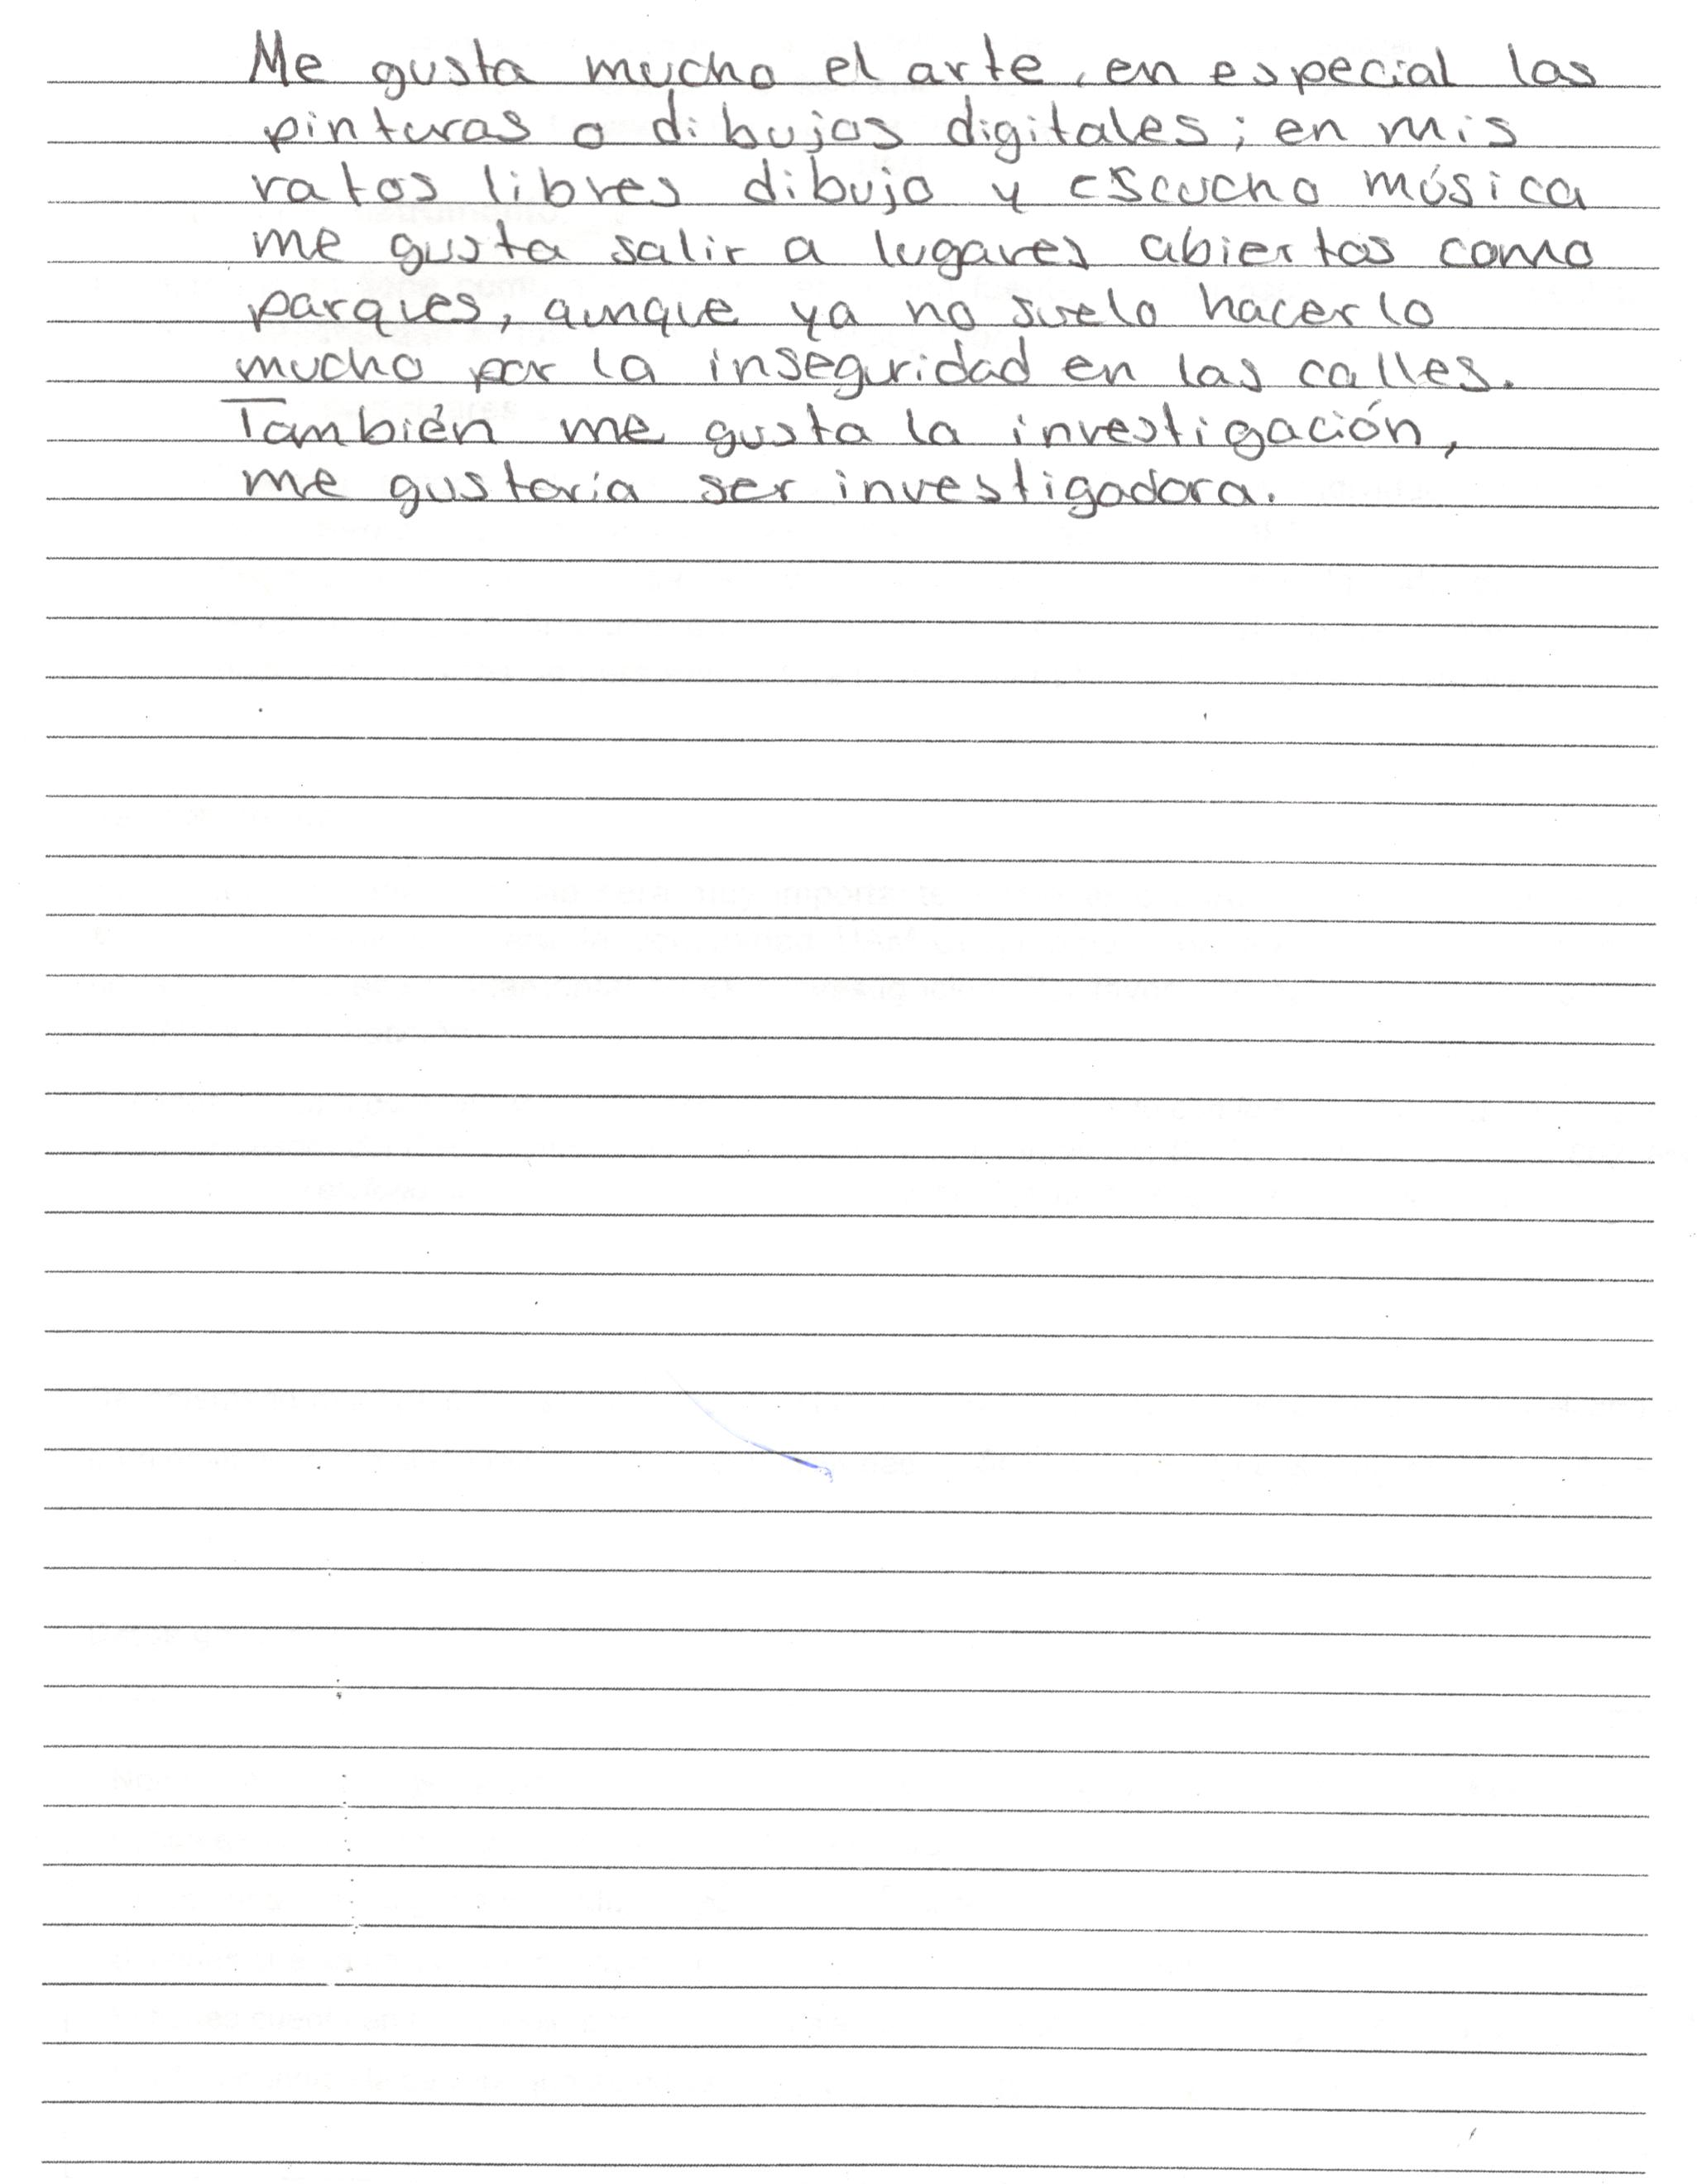 Me gusta mucho el arte, en especial las
pinturas o dibujos digitales; en mis
ratos libres dibujo y escucho música
me gusta salir a lugares abiertos como
parques, aunque ya no suelo hacerlo
mucho por la inseguridad en las calles.
También me gusta la investigación,
me gustaría ser investigadora.